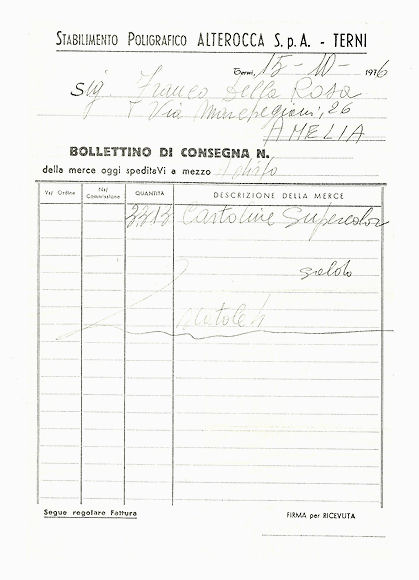 STABILIMENTO POLIGRAFICO ALTEROCCA S.p.A. - TERNI
Terni, 15-10-1976
Sig Franco Della Rosa
Via 26
AMELIA
BOLLETTINO DI CONSEGNA N.
della merce oggi speditaVi a mezzo
Vs/ Ordine Ns/ Commissione QUANTITÀ DESCRIZIONE DELLA MERCE
3313 Cartoline Supercolor
saldo
Segue regolare Fattura FIRMA per RICEVUTA